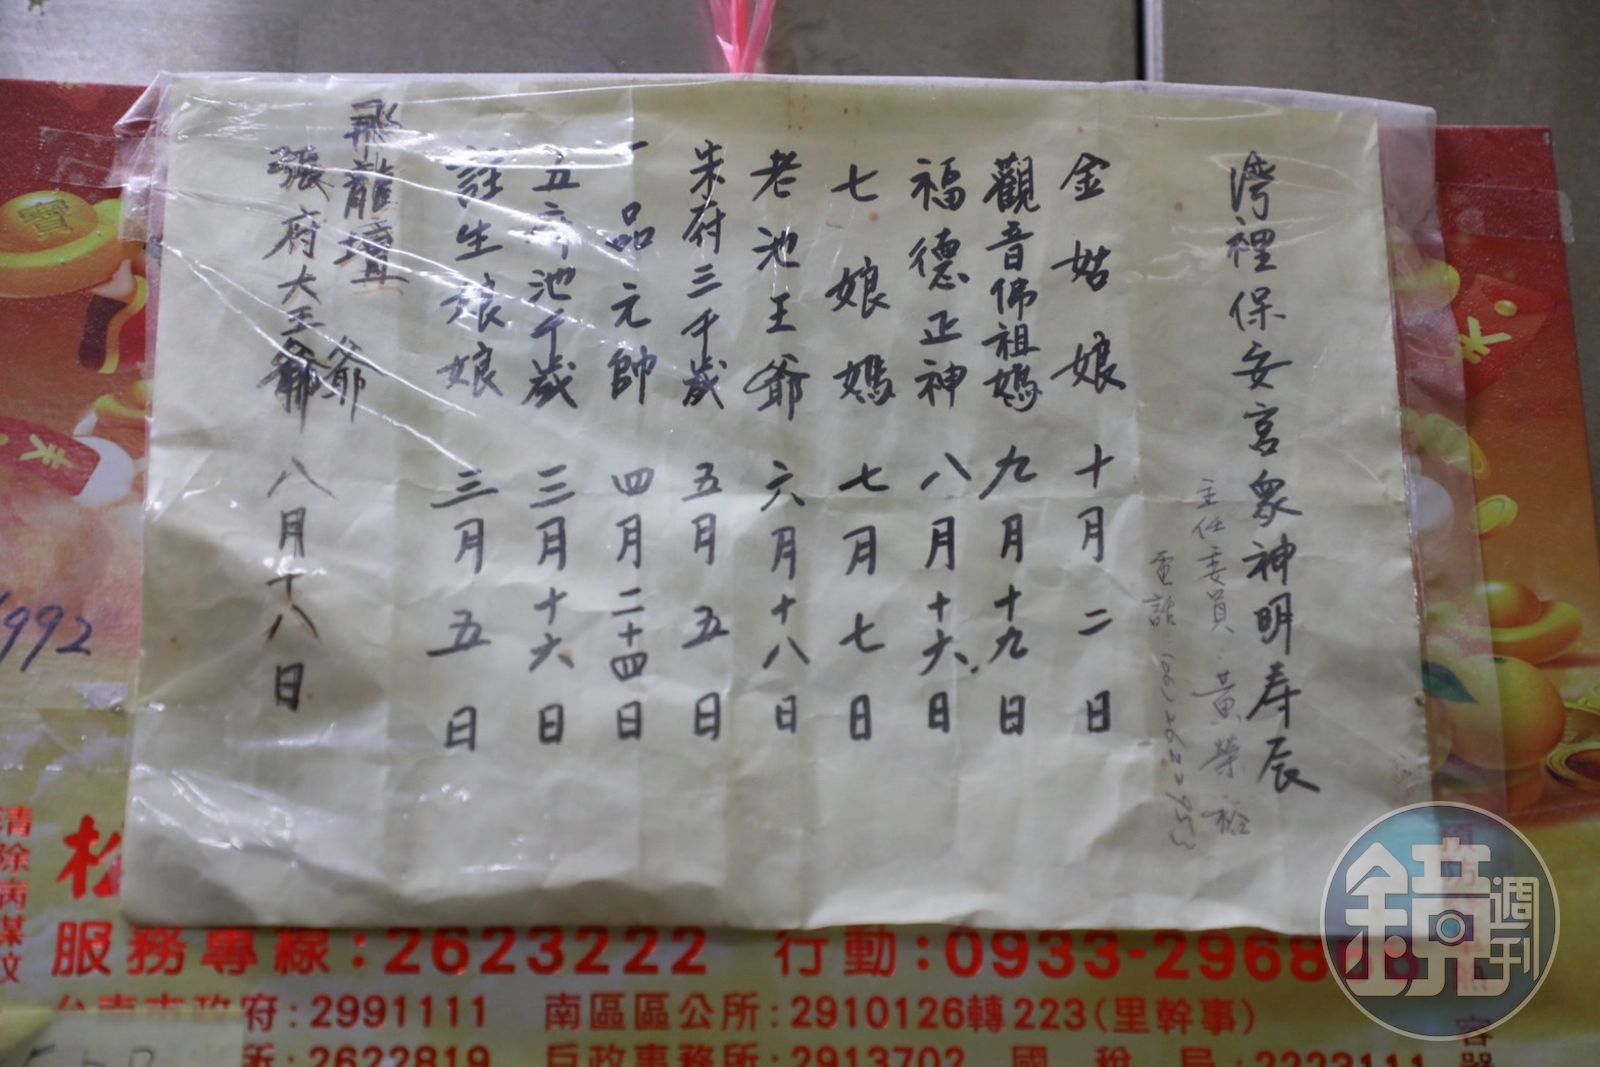 灣裡保安宮眾神明寿辰
主任委員：黃榮裕
電話：(06)2622953
金姑娘 十月二日
觀音佛祖媽 九月十九日
福德正神 八月十六日
七娘媽 七月七日
老池王爺 六月十八日
朱府三千歲 五月五日
一品元帥 四月二十四日
五府池千歲 三月十六日
註生娘娘 三月五日
飛龍壇
爺
張府大王爺 八月十八日
1992
清除病媒蚊
服務專線：2623222 行動：0933-2968
台南市政府：2991111 南區區公所：2910126轉223(里幹事)
所：2622819 戶政事務所：2913702 國稅局：2223111
容器
鏡週刊